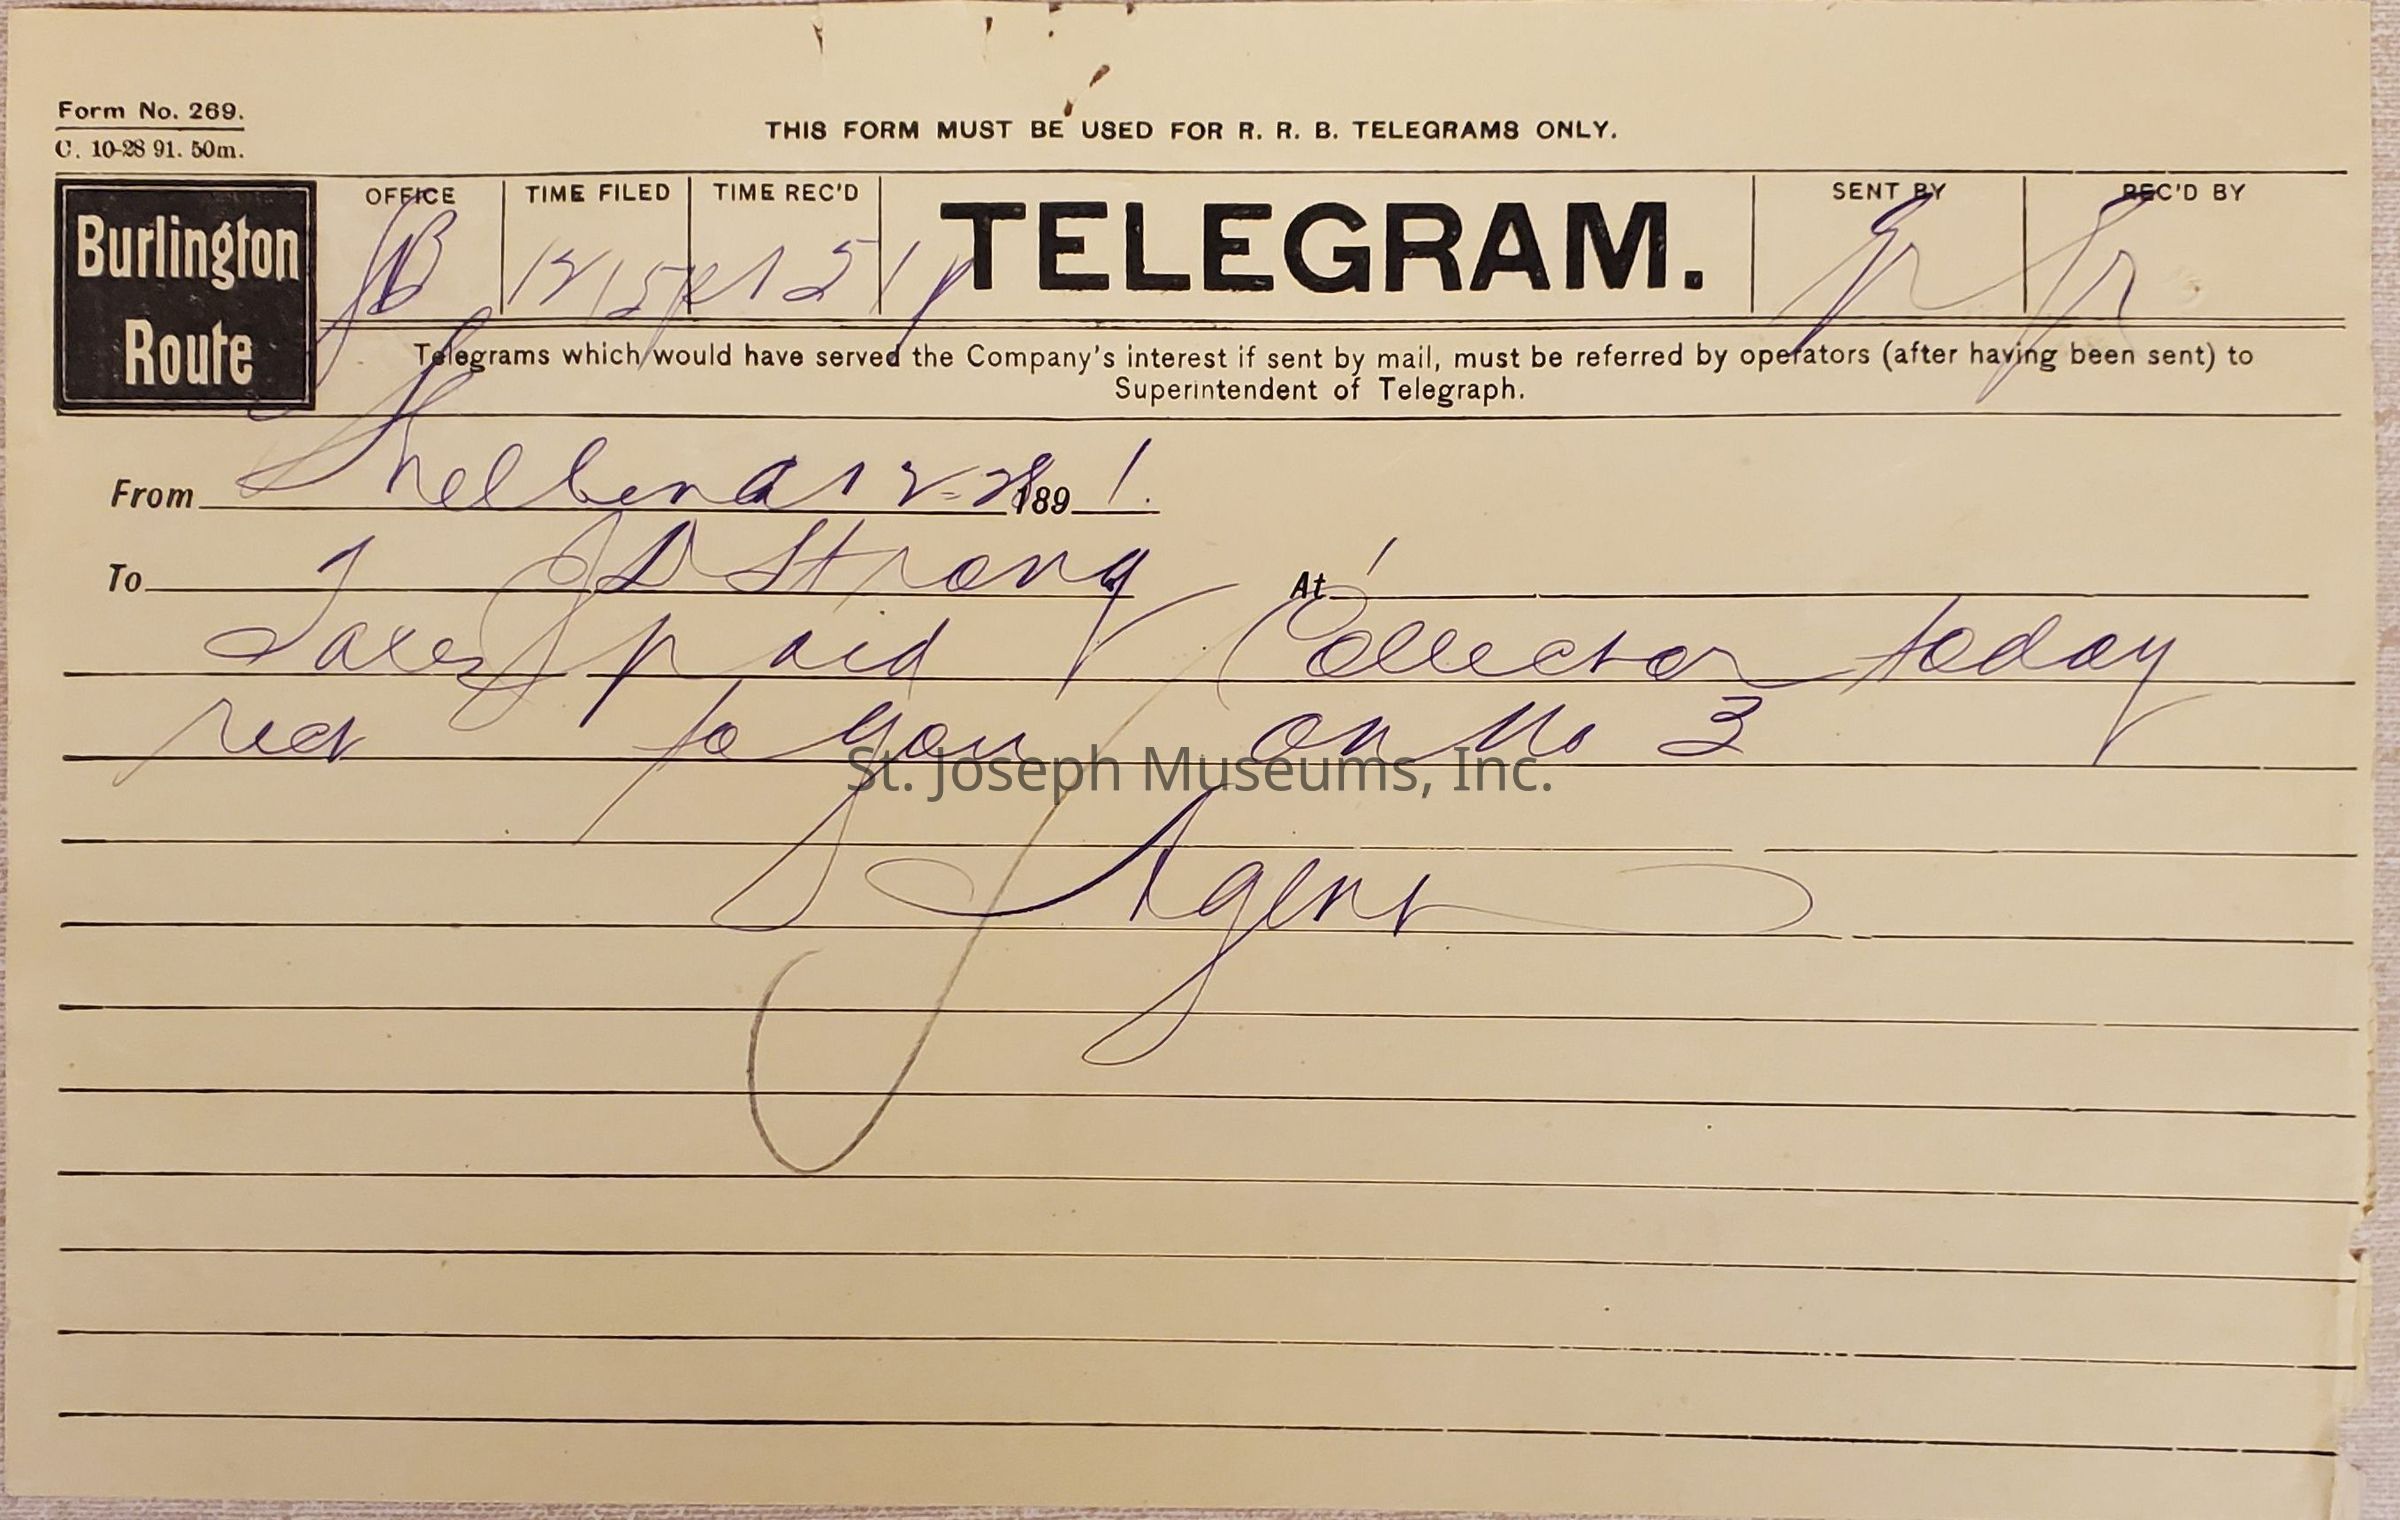 Form No. 269.
C. 10-28 91. 50m.
THIS FORM MUST BE USED FOR R. R. B. TELEGRAMS ONLY.
Burlington
Route
OFFICE TIME FILED TIME REC'D TELEGRAM. SENT BY REC'D BY
Telegrams which would have served the Company's interest if sent by mail, must be referred by operators (after having been sent) to
Superintendent of Telegraph.
From Shelbina 12-28 1891.
To J D Strong At
Taxes paid Collector today
rect to you on No 3
Agent
St. Joseph Museums, Inc.